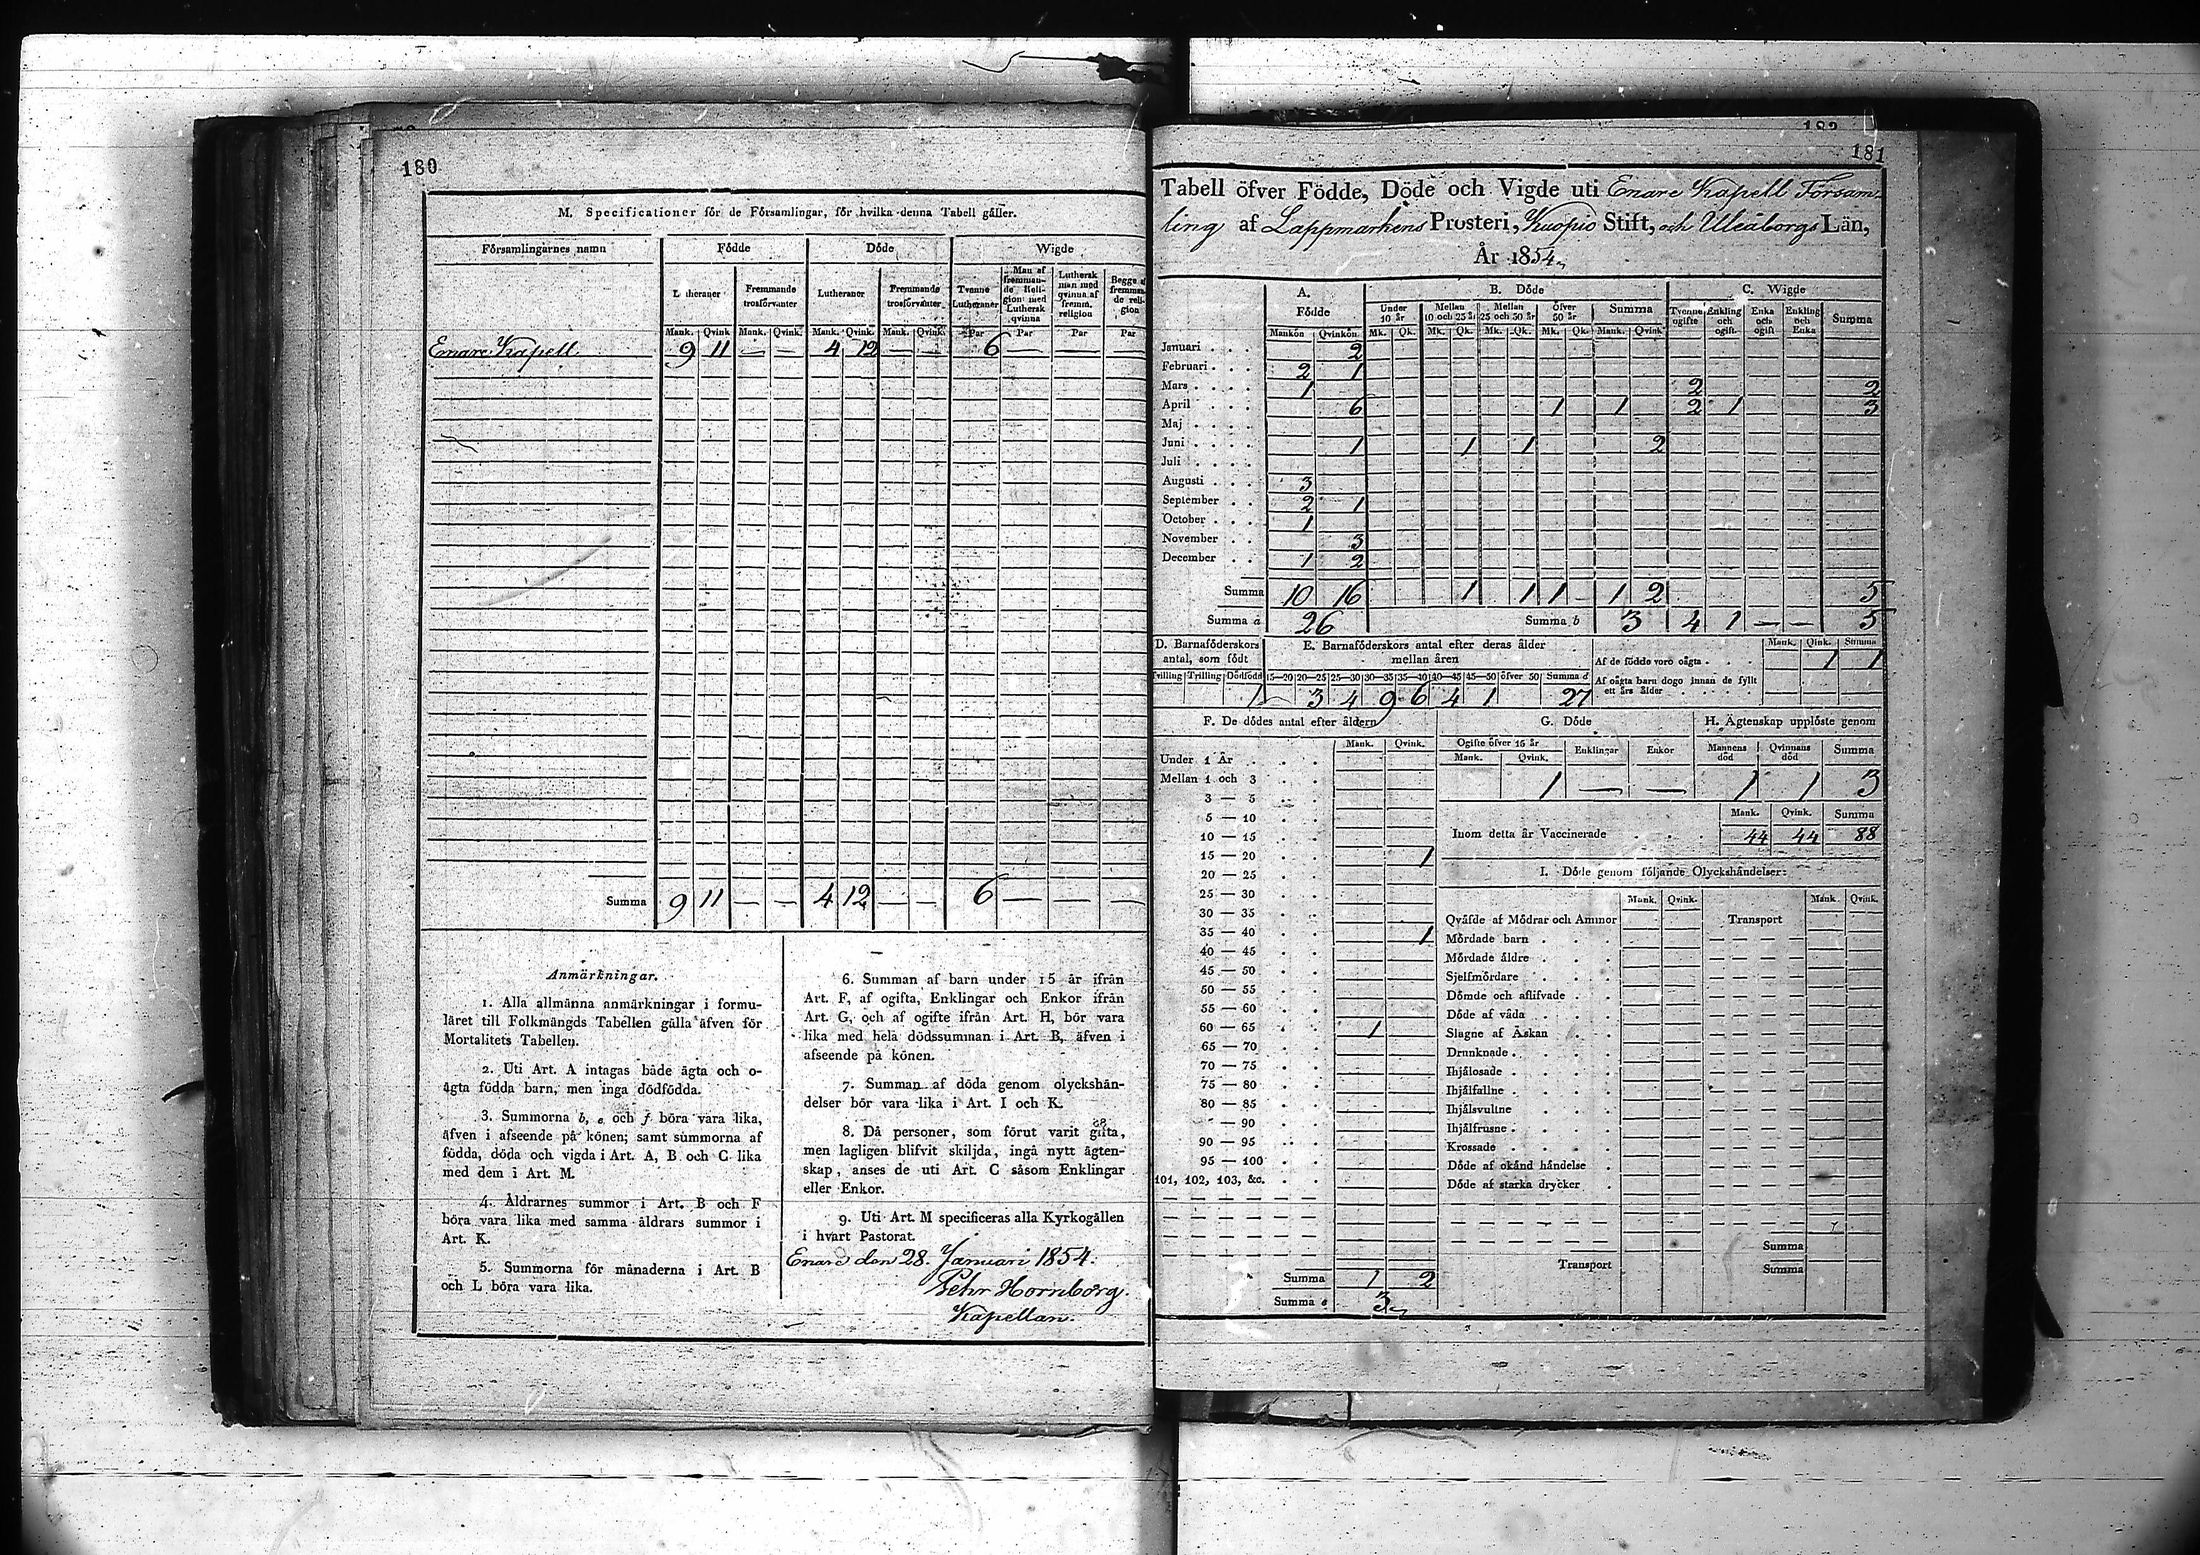 180
M. Specificationer för de Församlingar, för hvilka denna Tabell gäller.
Församlingarnes namn Födde Döde Wigde
Lutheraner Fremmande trosförvanter Lutheraner Fremmande trosförvanter Tvenne Lutheraner Man af fremmande Religion med Luthersk qvinna Luthersk man med qvinna af fremm. religion Begge af fremmande religion
Mank. Qvink Mank. Qvink. Mank. Qvink. Mank. Qvink. Par Par Par Par
Enare Kapell 9 11 — — 4 12 — — 6 — — —
Summa 9 11 — — 4 12 — — 6 — — —
Anmärkningar.
1. Alla allmänna anmärkningar i formu-
läret till Folkmängds Tabellen gälla äfven för
Mortalitets Tabellen.
2. Uti Art. A intagas både ägta och o-
ägta födda barn, men inga dödfödda.
3. Summorna b, e och f böra vara lika,
äfven i afseende på könen; samt summorna af
födda, döda och vigda i Art. A, B och C lika
med dem i Art. M.
4. Åldrarnes summor i Art. B och F
böra vara lika med samma åldrars summor i
Art. K.
5. Summorna för månaderna i Art. B
och L böra vara lika.
6. Summan af barn under 15 år ifrån
Art. F, af ogifta, Enklingar och Enkor ifrån
Art. G, och af ogifte ifrån Art. H, bör vara
lika med hela dödssumman i Art. B, äfven i
afseende på könen.
7. Summan af döda genom olyckshän-
delser bör vara lika i Art. I och K.
8. Då personer, som förut varit gifta,
men lagligen blifvit skiljda, ingå nytt ägten-
skap, anses de uti Art. C såsom Enklingar
eller Enkor.
9. Uti Art. M specificeras alla Kyrkogällen
i hvart Pastorat.
Enare den 28. Januari 1854.
Pehr Hornborg.
Kapellan.
182
181
Tabell öfver Födde, Döde och Vigde uti Enare Kapell Försam-
ling af Lappmarkens Prosteri, Kuopio Stift, och Uleåborgs Län,
År 1854
A. Födde B. Döde C. Wigde
Under 10 år Mellan 10 och 25 år Mellan 25 och 50 år Öfver 50 år Summa Tvenne ogifte Enkling och ogift Enka och ogift Enkling och Enka Summa
Mankön Qvinkön Mk. Qk. Mk. Qk. Mk. Qk. Mk. Qk. Mank. Qvink
Januari . . . 2
Februari . . . 2 1
Mars . . . . 1 2 2
April . . . 6 1 1 2 1 3
Maj . . . .
Juni . . . . 1 1 1 2
Juli . . . .
Augusti . . . 3
September . . 2 1
October . . . 1
November . . 3
December . . 1 2
Summa 10 16 1 1 1 1 2 5
Summa a 26 Summa b 3 4 1 — — 5
D. Barnaföderskors antal, som födt E. Barnaföderskors antal efter deras ålder mellan åren Mank. Qink. Summa
Af de födde voro oägta . . . 1 1
Tvilling Trilling Dödfödd 15—20 20—25 25—30 30—35 35—40 40—45 45—50 öfver 50 Summa d
Af oägta barn dogo innan de fyllt ett års ålder
1 — 3 4 9 6 4 1 27
F. De dödes antal efter åldern G. Döde H. Ägtenskap upplöste genom
Mank. Qvink. Ogifte öfver 15 år Enklingar Enkor Mannens död Qvinnans död Summa
Mank. Qvink.
1 — — 1 1 3
Mank. Qvink. Summa
Inom detta år Vaccinerade . . . 44 44 88
I. Döde genom följande Olyckshändelser:
Mank. Qvink. Mank. Qvink.
Under 1 År
Mellan 1 och 3
3 — 5
5 — 10
10 — 15
15 — 20 1
20 — 25
25 — 30
30 — 35
35 — 40 1
40 — 45
45 — 50
50 — 55
55 — 60
60 — 65 1
65 — 70
70 — 75
75 — 80
80 — 85
— 90
90 — 95
95 — 100
101, 102, 103, &c.
Summa 1 2
Summa e 3
Qväfde af Mödrar och Ammor Transport
Mördade barn
Mördade äldre
Sjelfmördare
Dömde och aflifvade
Döde af våda
Slagne af Åskan
Drunknade
Ihjälosade
Ihjälfallne
Ihjälsvultne
Ihjälfrusne
Krossade
Döde af okänd händelse
Döde af starka drycker
Summa
Transport Summa